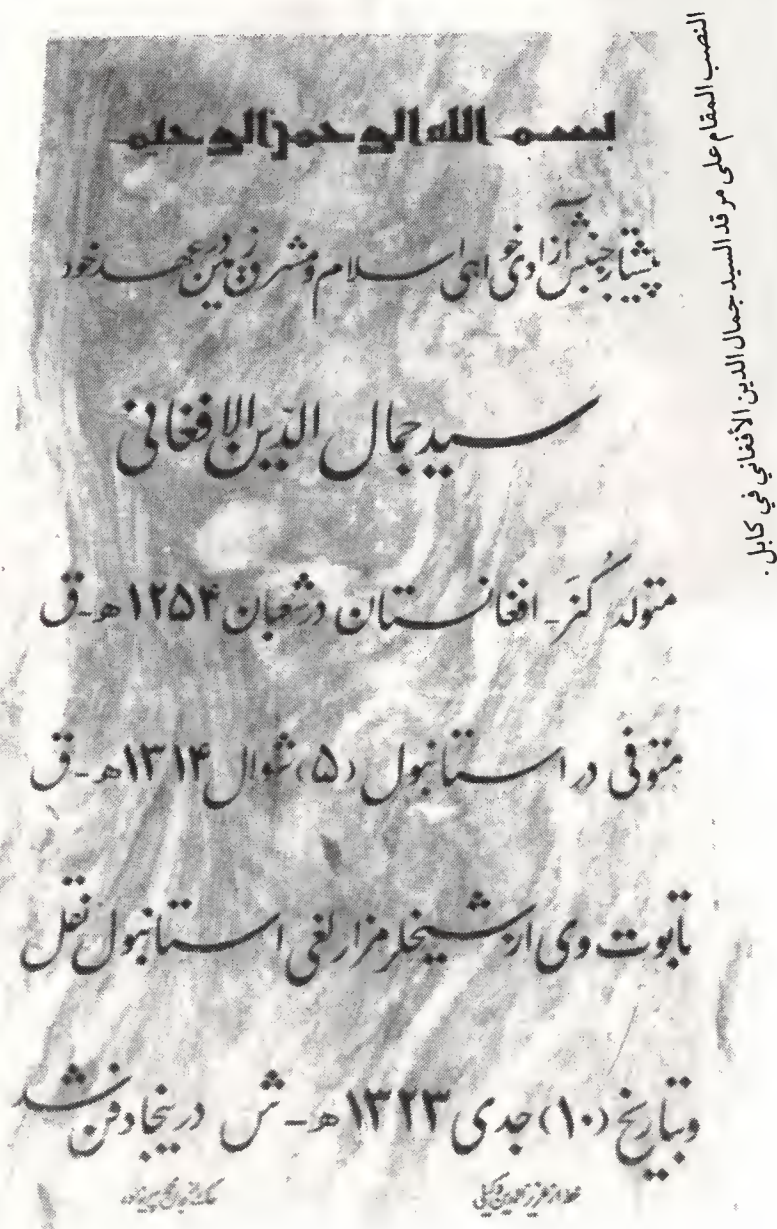 بسم الله الرحمن الرحیم
پیشتاز جنبش آزادی خواهی اسلام و مشرق زمین در عهد خود
سید جمال الدّین الافغانی
متولد کُنَر - افغانستان در شعبان ۱۲۵۴ هـ - ق
متوفی در استانبول (۵) شوال ۱۳۱۴ هـ - ق
تابوت وی از شیخلر مزارلغی استانبول نقل
و بتاریخ (۱۰) جدی ۱۳۲۳ هـ - ش درینجا دفن شد
النصب المقام على مرقد السيد جمال الدين الأفغاني في كابل .